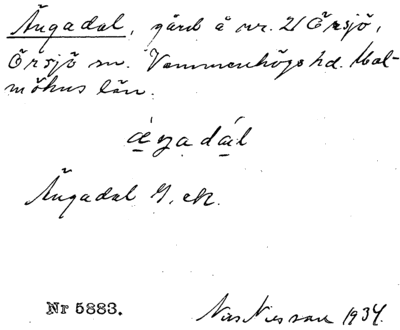 Ängadal, gård å nr. 21 Örsjö,
Örsjö sn. Vemmenhögs hd. Mal-
möhus län.
Ängadal G. ek.
Nr 5883.
Nils Nilsson 1934.